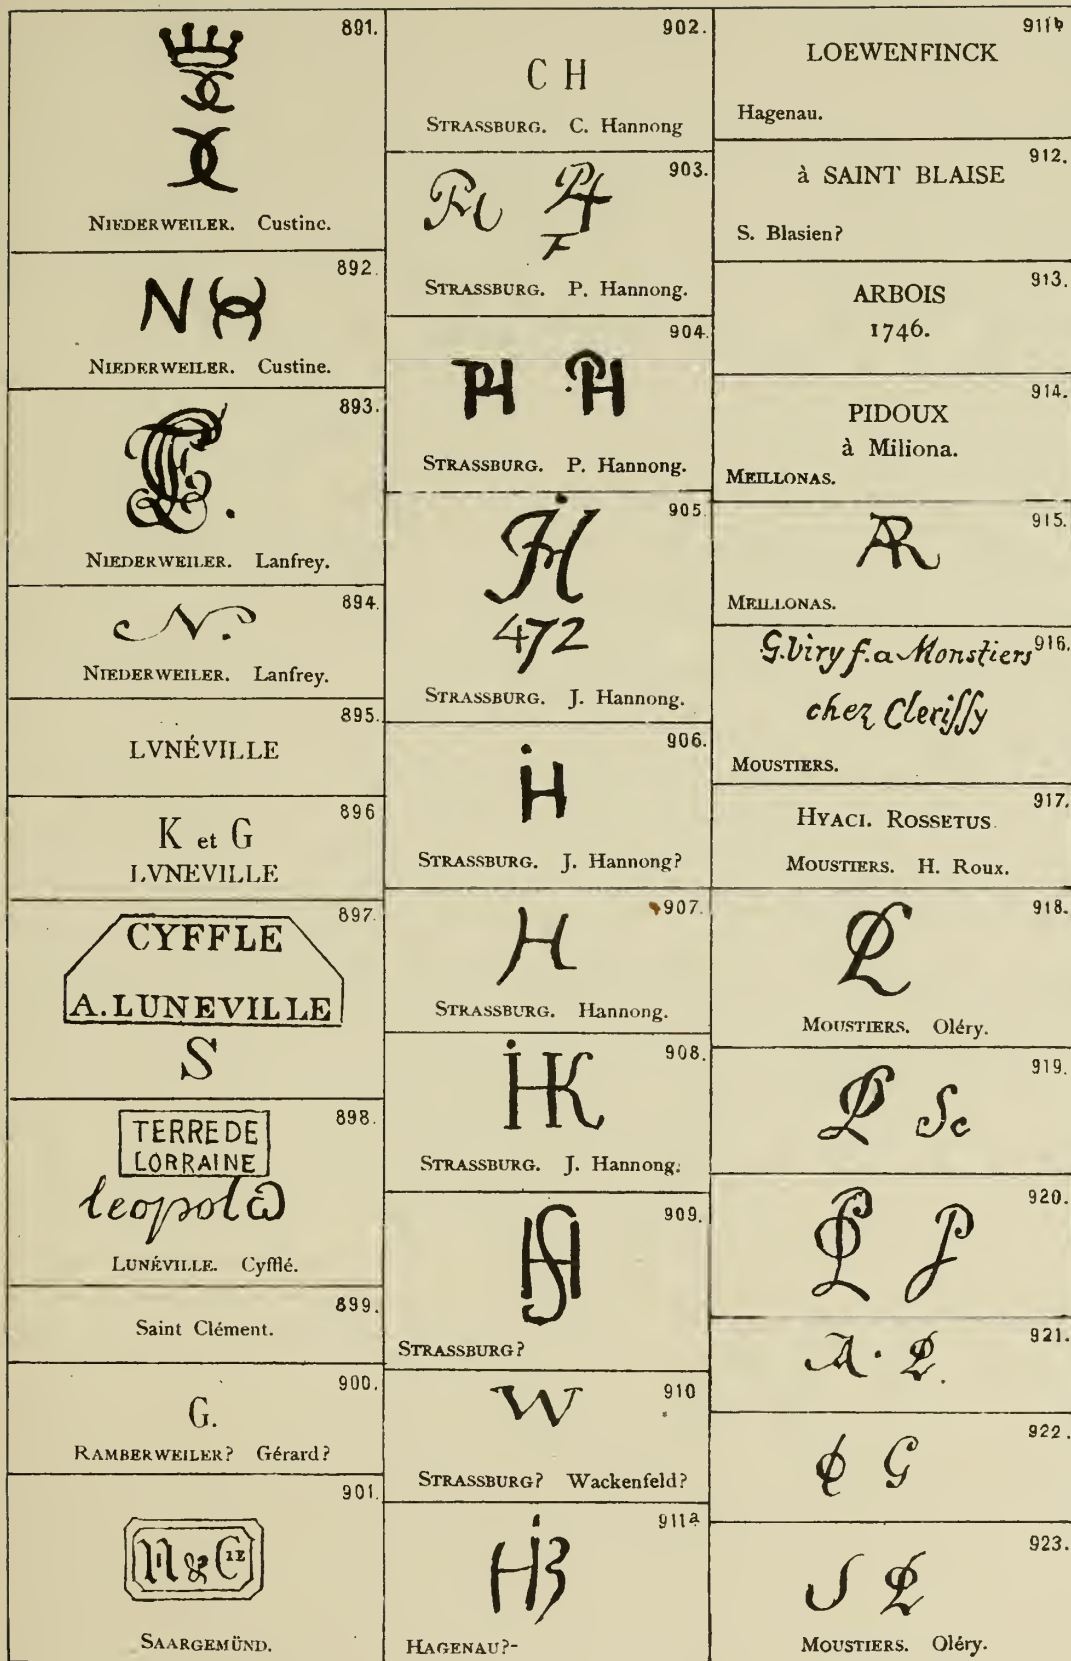 891.
NIEDERWEILER. Custine.
892.
N
NIEDERWEILER. Custine.
893.
NIEDERWEILER. Lanfrey.
894.
N.
NIEDERWEILER. Lanfrey.
895.
LVNÉVILLE
896
K et G
LVNEVILLE
897.
CYFFLE
A.LUNEVILLE
S
898.
TERRE DE
LORRAINE
leopold
LUNÉVILLE. Cyfflé.
899.
Saint Clément.
900.
G.
RAMBERWEILER? Gérard?
901.
SAARGEMÜND.
902.
C H
STRASSBURG. C. Hannong
903.
PH PH
F
STRASSBURG. P. Hannong.
904.
PH PH
STRASSBURG. P. Hannong.
905.
JH
472
STRASSBURG. J. Hannong.
906.
iH
STRASSBURG. J. Hannong?
907.
H
STRASSBURG. Hannong.
908.
iHK
STRASSBURG. J. Hannong.
909.
HS
STRASSBURG?
910
W
STRASSBURG? Wackenfeld?
911a
HAGENAU?-
911b
LOEWENFINCK
Hagenau.
912.
à SAINT BLAISE
S. Blasien?
913.
ARBOIS
1746.
914.
PIDOUX
à Miliona.
MEILLONAS.
915.
AR
MEILLONAS.
916.
G. Viry f. a Monstiers
chez Clerissy
MOUSTIERS.
917.
HYACI. ROSSETUS
MOUSTIERS. H. Roux.
918.
MOUSTIERS. Oléry.
919.
Sc
920.
P
921.
A.
922.
G
923.
MOUSTIERS. Oléry.